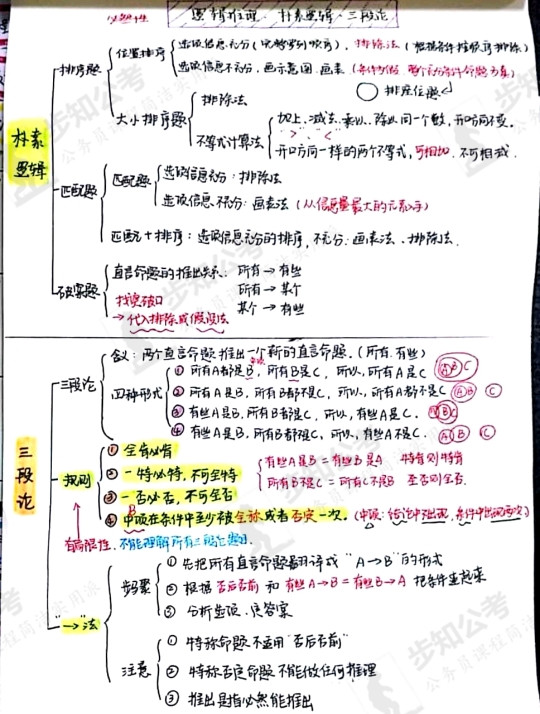 必然性
逻辑推理 - 朴素逻辑 - 三段论
朴素逻辑
排序题
位置排序
选项信息充分(完整罗列顺序),排除法(根据条件按顺序排除)
选项信息不充分,画示意图、画表
排座位题
大小排序题
排除法
不等式计算法
加上、减法、乘以、除以同一个数,开口方向不变。
">" "<"
开口方向一样的两个不等式,可相加,不可相减.
匹配题
匹配题
选项信息充分:排除法
选项信息不充分:画表法(从信息量最大的元素入手)
匹配+排序:选项信息充分的排序,不充分:画表法、排除法.
破案题
直言命题的推出关系:所有→有些
所有→某个
某个→有些
找突破口
→代入排除或假设法
三段论
三段论
含义:两个直言命题推出一个新的直言命题.(所有、有些)
四种形式
① 所有A都是B,所有B是C,所以,所有A是C ABC
② 所有A是B,所有B都不是C,所以,所有A都不是C AB C
③ 有些A是B,所有B都是C,所以,有些A是C. ABC
④ 有些A是B,所有B都不是C,所以,有些A不是C. AB C
规则
① 全肯必肯
② 一特必特,不可全特
③ 一否必否,不可全否
④ 中项在条件中至少被全称或者否定一次.(中项:结论中不出现,条件中出现两次)
有些A是B=有些B是A 特肯则特肯
所有B不是C=所有C不是B 全否则全否.
有局限性,不能理解所有三段论题目.
"→"法
步骤
① 先把所有直言命题翻译成"A→B"的形式
② 根据否后否前和有些A→B=有些B→A 把条件连起来
③ 分析选项、选答案
注意
① 特称命题不适用"否后否前"
② 特称否定命题不能做任何推理
③ 推出是指必然能推出
步知公考
公务员课程简洁实用派